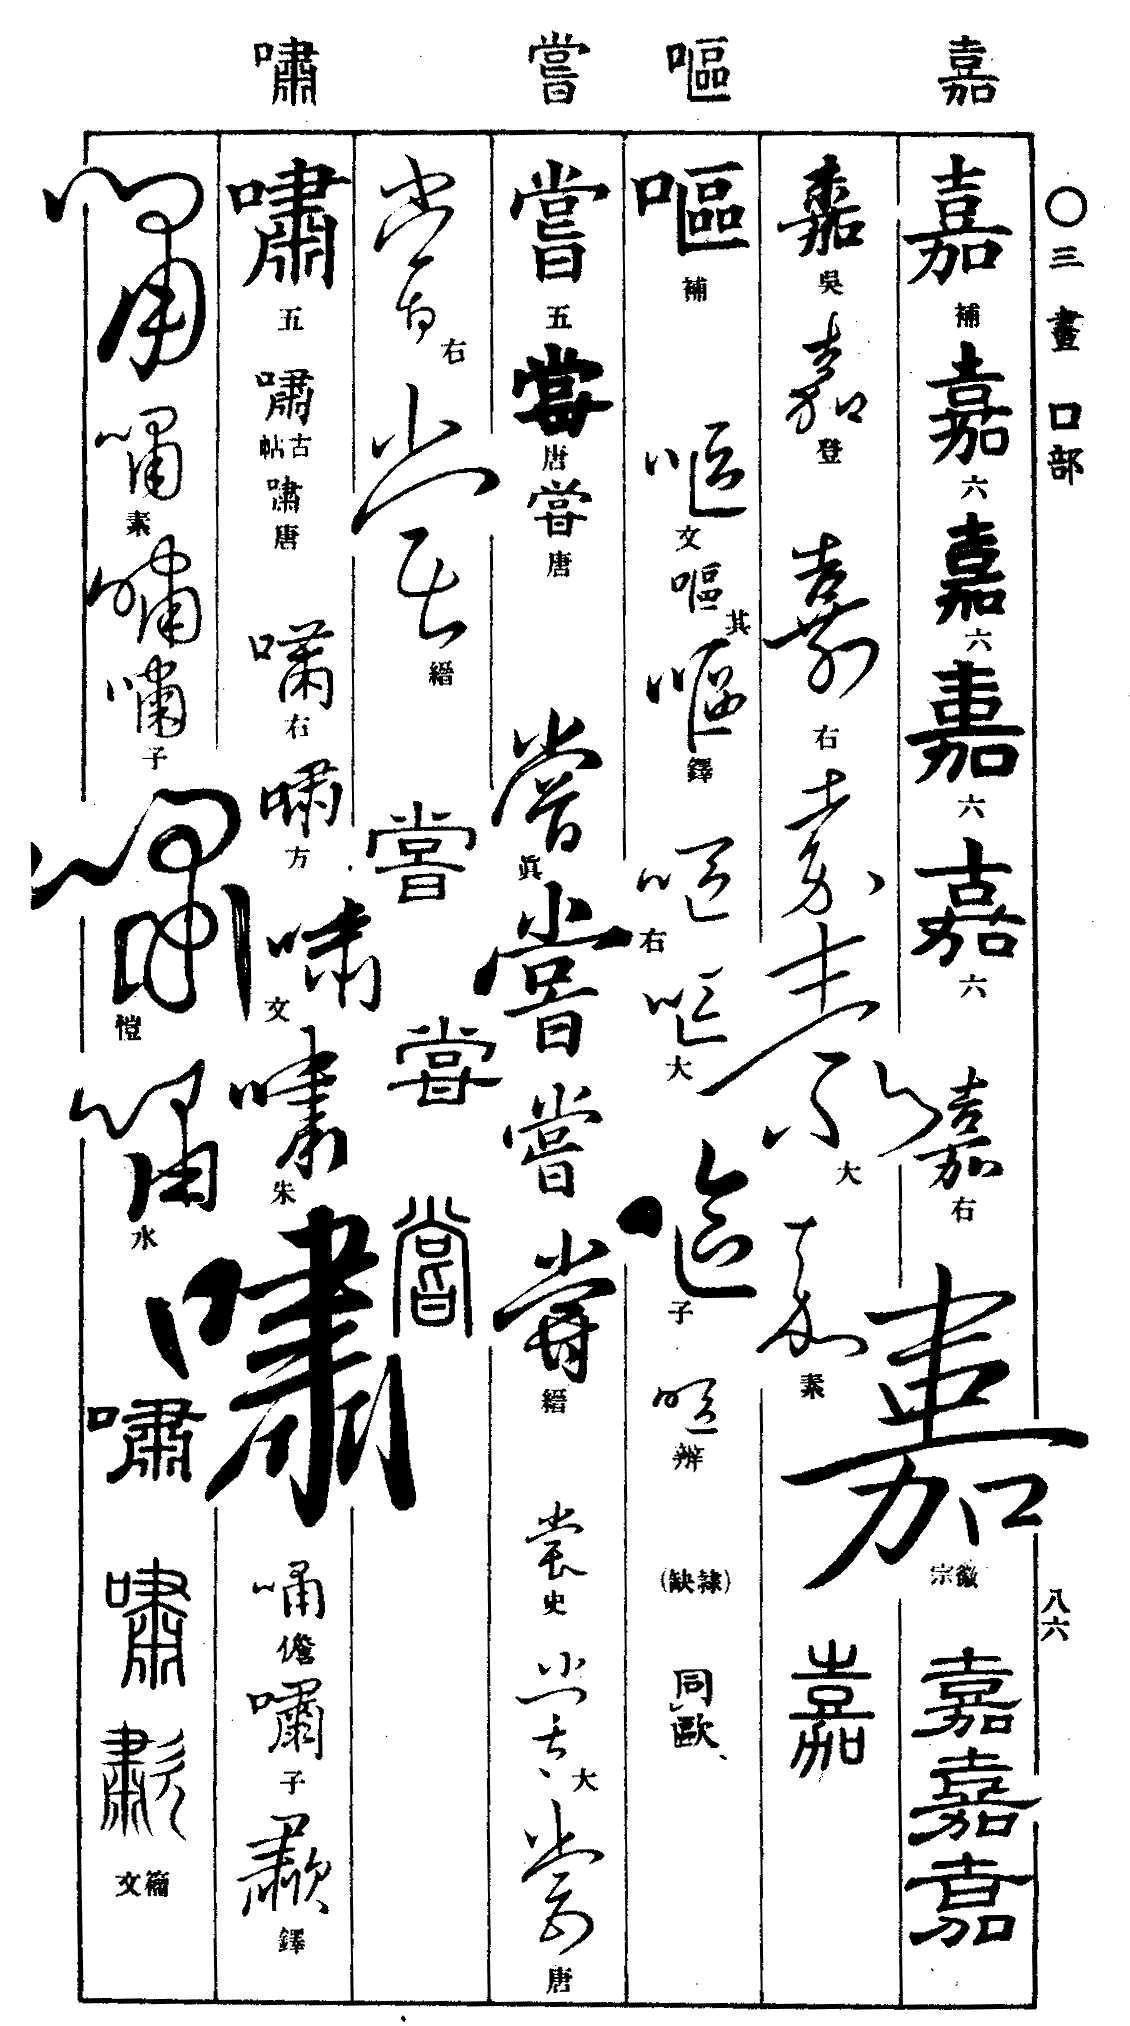 嘉 嘔 嘗 嘯
〇三畫 口部
八六
嘉 補 嘉 六 嘉 六 嘉 六 嘉 六 嘉 右 嘉 徽宗 嘉 嘉 嘉
嘉 吳 嘉 登 嘉 右 嘉 嘉 大 嘉 素 嘉
嘔 補 嘔 文 嘔 其 嘔 鐸 嘔 右 嘔 大 嘔 子 嘔 辦 (隸缺) 同歐
嘗 五 嘗 唐 嘗 唐 嘗 眞 嘗 嘗 嘗 縉 嘗 史 嘗 大 嘗 唐
嘗 右 嘗 縉 嘗 嘗 嘗
嘯 五 嘯 古帖 嘯 唐 嘯 右 嘯 方 嘯 文 嘯 朱 嘯 嘯 儋 嘯 子 歗 鐸
嘯 嘯 素 嘯 嘯 子 嘯 愷 嘯 水 嘯 嘯 歗 籀文